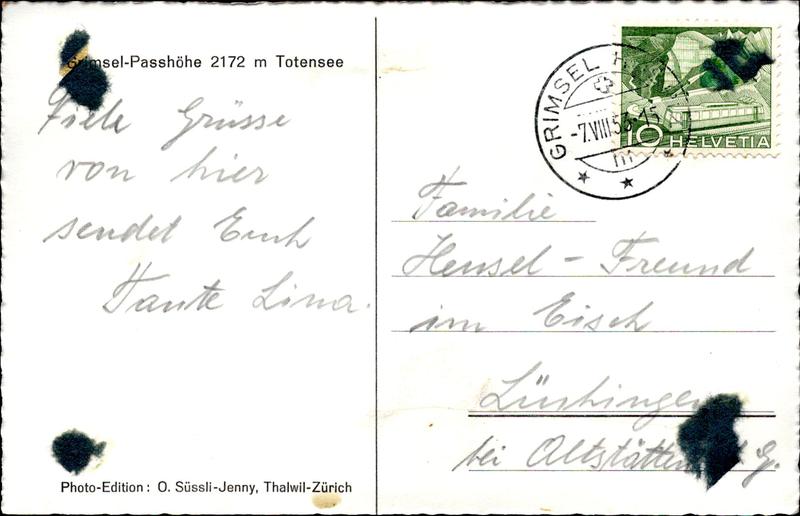 Grimsel-Passhöhe 2172 m Totensee
Viele Grüsse
von hier
sendet Euch
Tante Lina.
Photo-Edition: O. Süssli-Jenny, Thalwil-Zürich
GRIMSEL
-7.VIII.53-15
10 HELVETIA
Familie
Hensel-Freund
im Eisch
Lüchingen
bei Altstätten G.